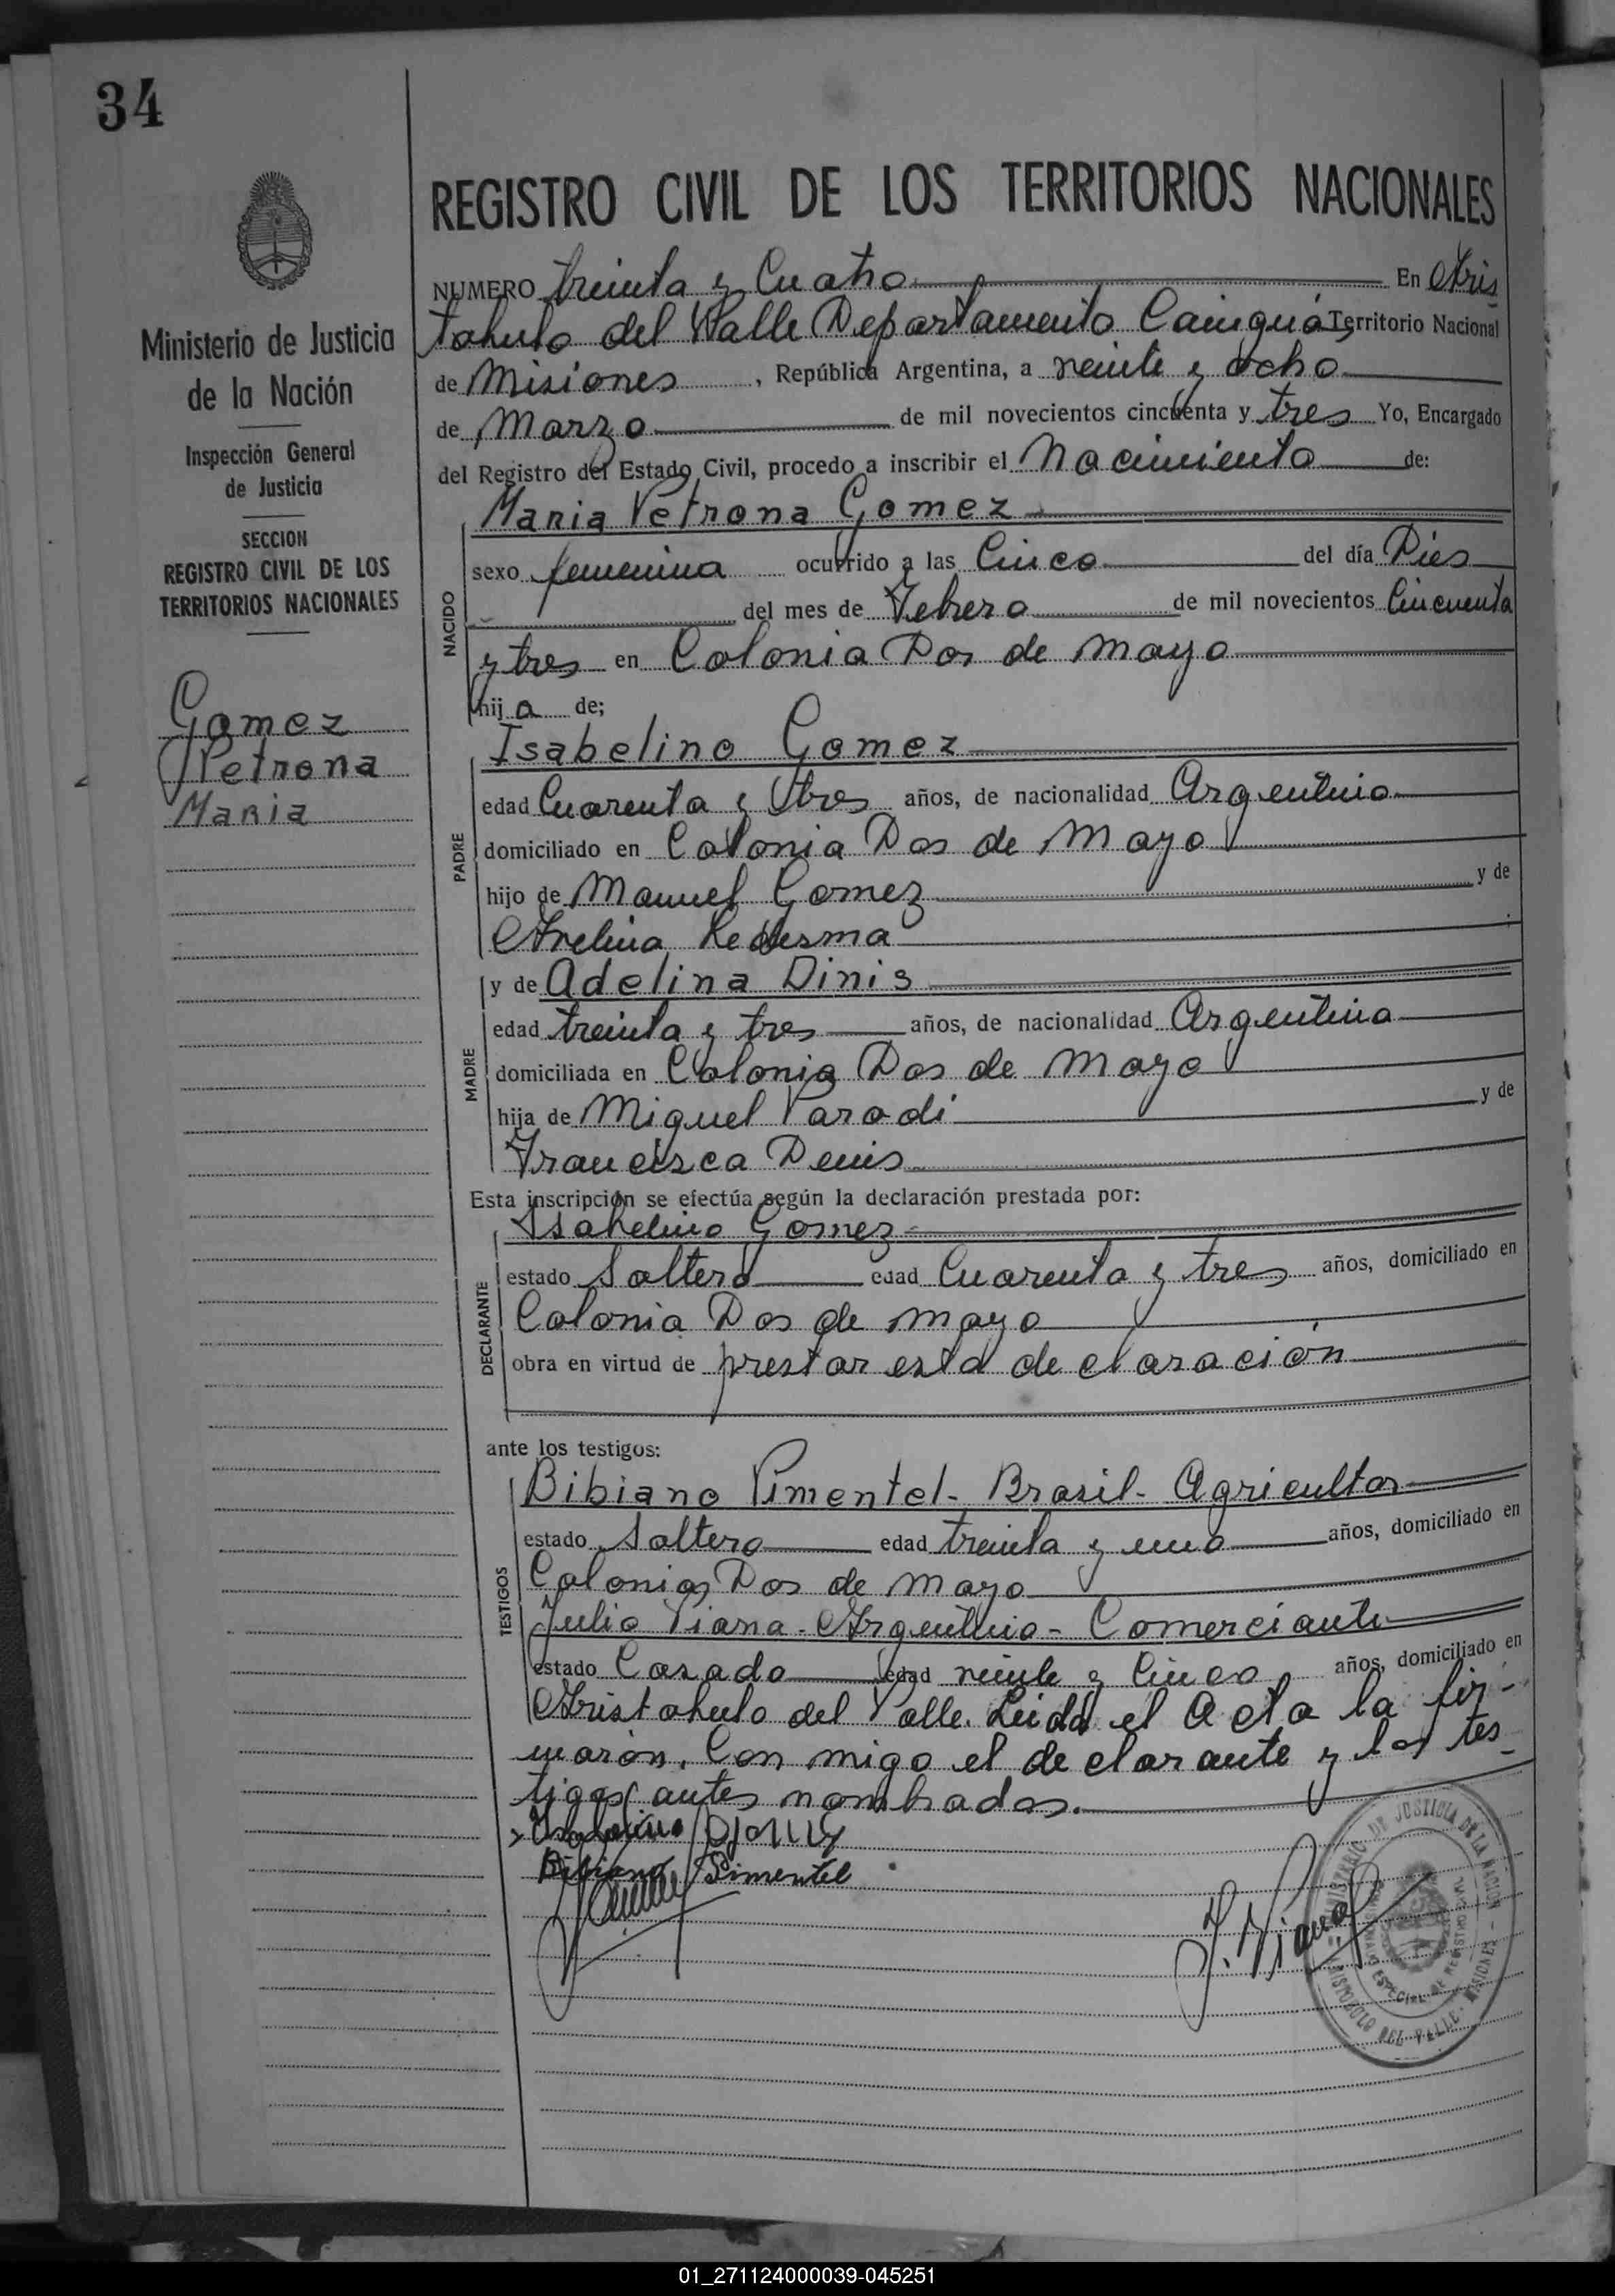 34
Ministerio de Justicia
de la Nación
Inspección General
de Justicia
SECCION
REGISTRO CIVIL DE LOS
TERRITORIOS NACIONALES
Gomez
Petrona
Maria
REGISTRO CIVIL DE LOS TERRITORIOS NACIONALES
NUMERO treinta y Cuatro En Aris
tobulo del Valle Departamento Cainguás Territorio Nacional
de Misiones, República Argentina, a veinte y ocho
de Marzo de mil novecientos cincuenta y tres Yo, Encargado
del Registro del Estado Civil, procedo a inscribir el Nacimiento de:
Maria Petrona Gomez
NACIDO
sexo femenina ocurrido a las Cinco del día Dies
del mes de Febrero de mil novecientos Cincuenta
y tres en Colonia Dos de Mayo
hija de;
Isabelino Gomez
PADRE
edad Cuarenta y tres años, de nacionalidad Argentino
domiciliado en Colonia Dos de Mayo
hijo de Manuel Gomez y de
Avelina Ledesma
y de Adelina Dinis
MADRE
edad treinta y tres años, de nacionalidad Argentina
domiciliada en Colonia Dos de Mayo
hija de Miguel Parodi y de
Francisca Denis
Esta inscripción se efectúa según la declaración prestada por:
Isabelino Gomez
DECLARANTE
estado Soltero edad Cuarenta y tres años, domiciliado en
Colonia Dos de mayo
obra en virtud de prestar esta declaración
ante los testigos:
Bibiano Pimentel - Brasil - Agricultor
TESTIGOS
estado Soltero edad treinta y uno años, domiciliado en
Colonia Dos de mayo
Julio Viana - Argentino - Comerciante
estado Casado edad veinte y Cinco años, domiciliado en
Aristobulo del Valle. Leida el Acta la fir-
marón, Con migo el declarante y los tes
tigos antes nombrados.
Bibiano Pimentel
J. Viana
MINISTERIO DE JUSTICIA DE LA NACION
ARISTOBULO DEL VALLE - MISIONES
01_271124000039-045251